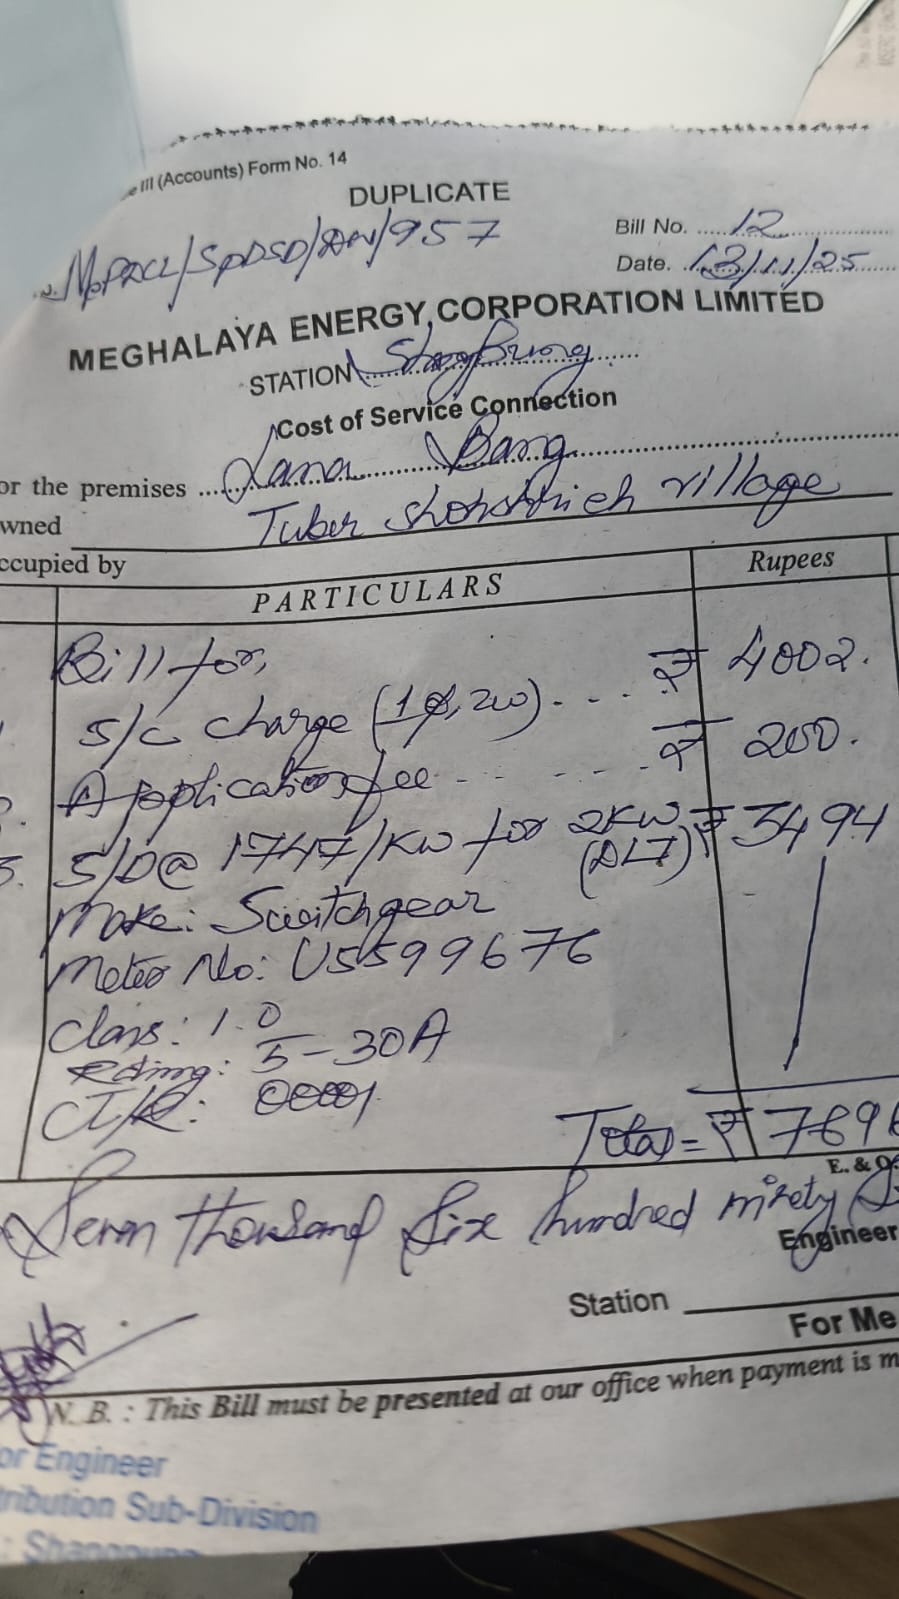 III (Accounts) Form No. 14
DUPLICATE
Bill No. 12
957
Date. 13/11/25
MEGHALAYA ENERGY CORPORATION LIMITED
STATION
Cost of Service Connection
or the premises Lana Bang
wned
Tuber village
ccupied by
PARTICULARS Rupees
Bill for,
S/C charge (1φ, 2w) .... ₹ 4002.
Application fee ........ ₹ 200.
3. S/D@ 1747/KW for 2KW ₹ 3494
(DLT)
Make: Switchgear
Meter No: U5599676
Class: 1.0
Rating: 5-30A
Total = ₹ 769
E. & O.
Seven thousand Six hundred ninety
Engineer
Station
For Me
N. B. : This Bill must be presented at our office when payment is m
or Engineer
tribution Sub-Division